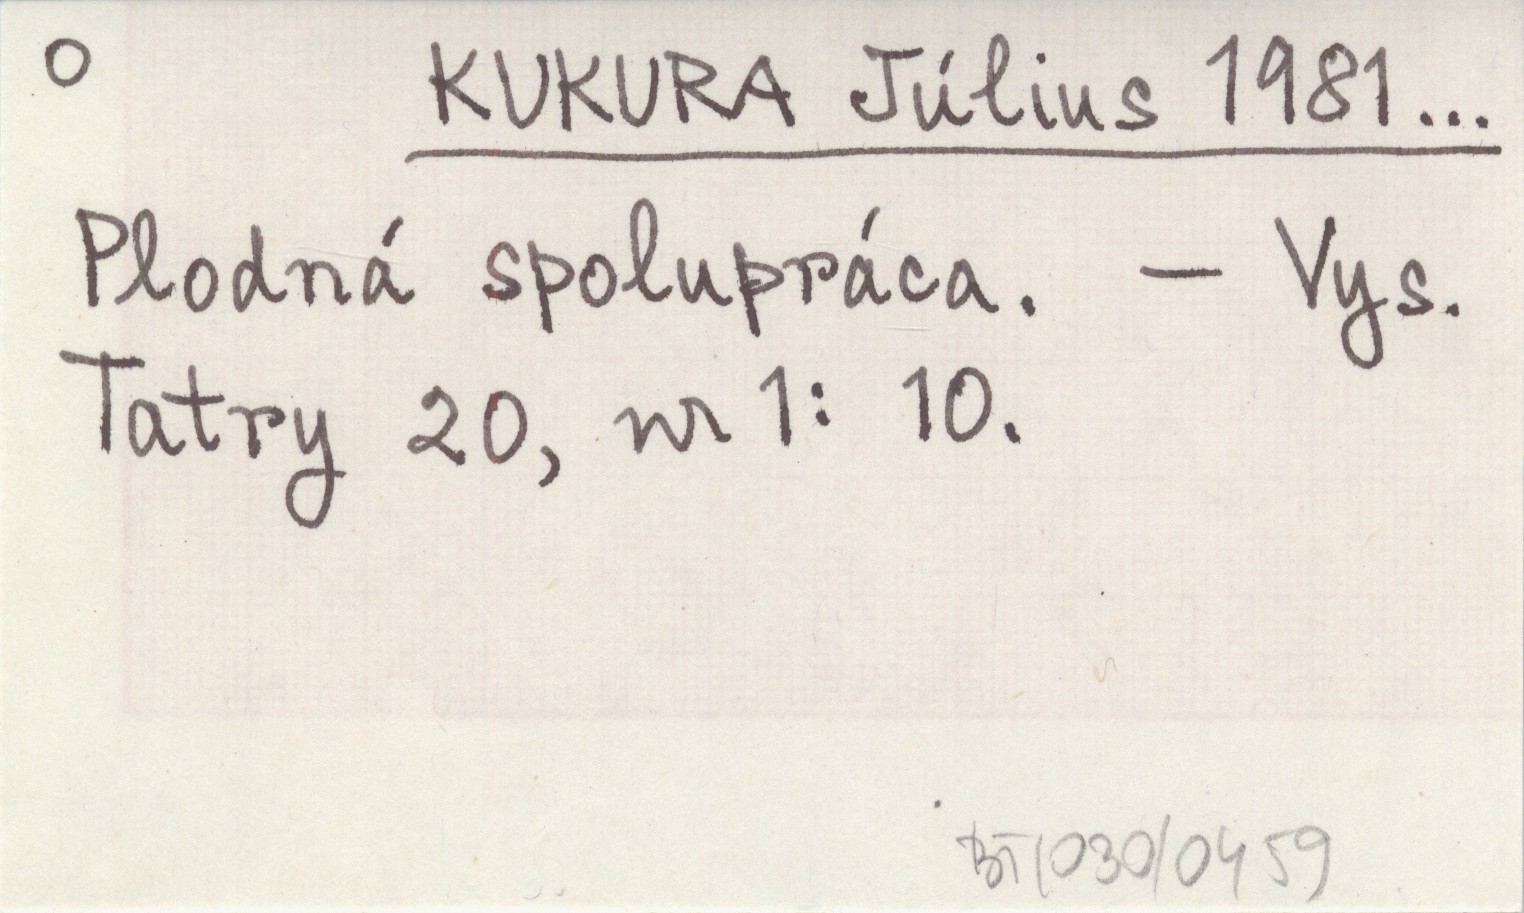 O KUKURA Július 1981...
Plodná spolupráca. – Vys.
Tatry 20, nr 1: 10.
BT/030/0459